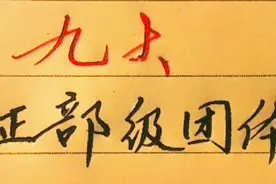 九大
正部级团体